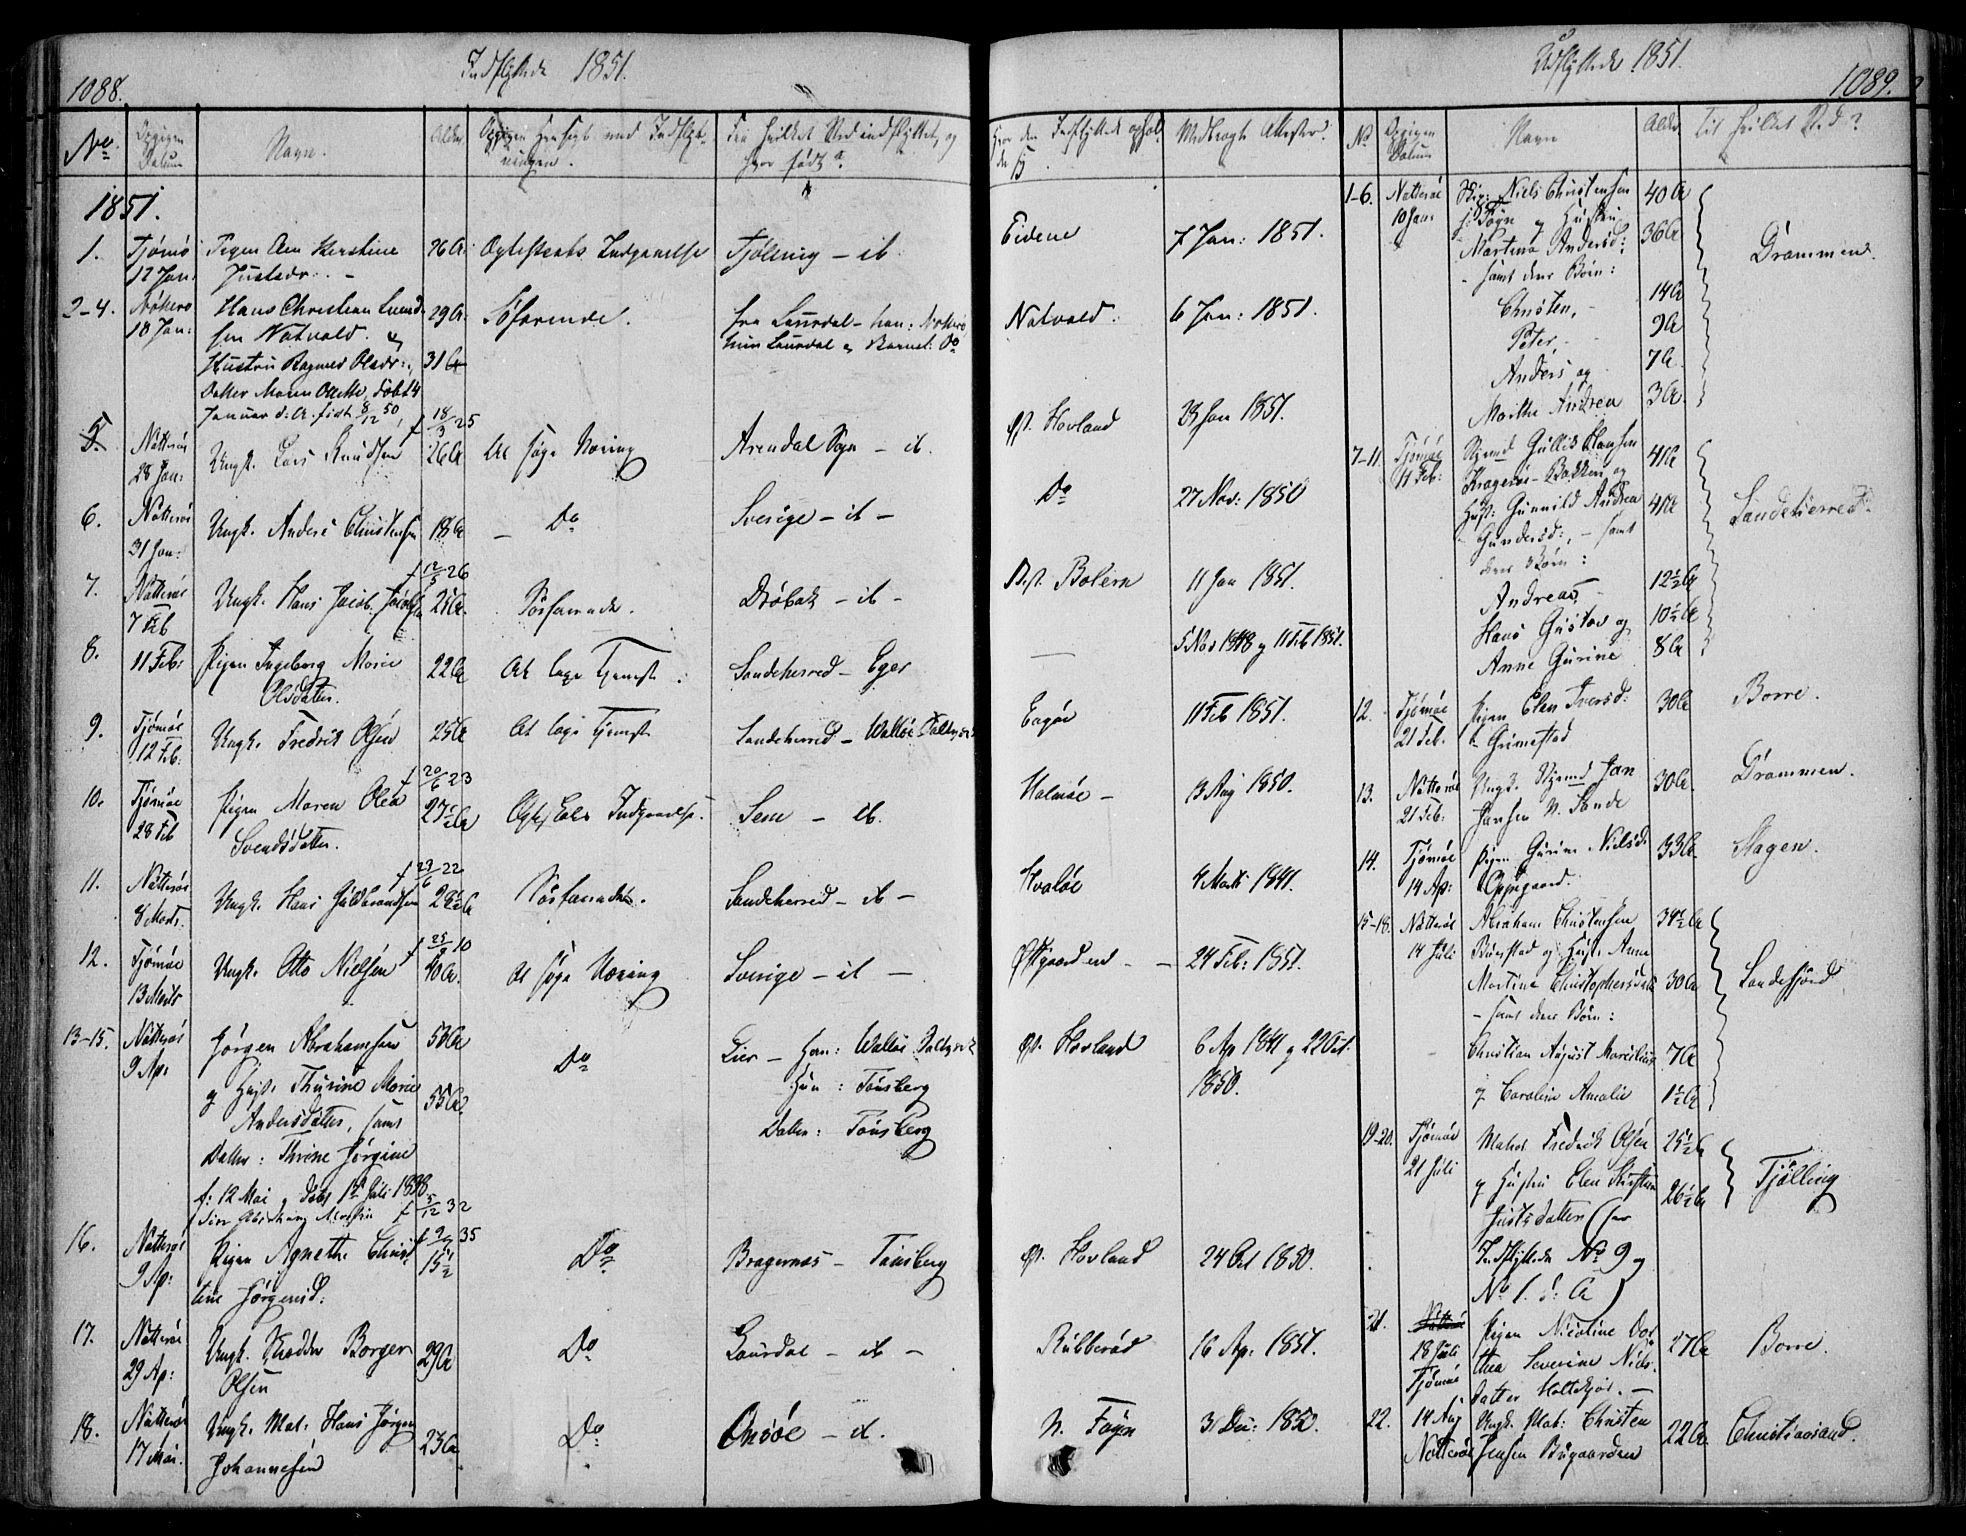 1088.
Indflyttede 1851.
No.
Datum
Navn.
Alder
hvor født?
1851.
1.
Tjømø
12 Jan:
Pigen Aen Kirstine
Justsdr: -
26 A:
Ægteskabs Indgaaelse
Tjölling - ib.
Eidene
7 Jan: 1851.
2-4.
Nøtterø
10 Jan:
Hans Christian
sen Natvald. og
Hustru Ragnild Olsdr:,
Datter Maren Olette, døbt 14
Januar d: A. født 8/12 50,
29 A:
31 A
Søfarende.
fra Laurdal - han: Nøtterø
hun Laurdal og Barnet Do
Natvald.
6 Jan: 1851.
5.
Nøtterøe
28 Jan:
Ungk. Lars Knudsen
f 18/3 25
26 A
At søge Næring
Arendal Sogn - ib.
Øst. Hovland
23 Jan 1851.
6.
Nøtterøe
31 Jan:
Ungk. Anders Christensen
18 A
- Do
Sverige - ib -
Do
27 Nov: 1850
7.
Nøtterøe
7 Feb
Ungk. Hans Jacob Jacobsen
f 12/5 26
25 A.
Søefarende.
Drøbak - ib -
Bolern
11 Jan 1851.
8.
11 Feb:
Pigen Ingeborg Marie
Olsdatter.
22 A
At tage Tjeneste.
Sandeherred - Eger
5 Nov 1848 og 11 Feb 1851.
9.
Tjømøe
12 Feb:
Ungk. Fredrik Olsen
25 A
At tage Tjeneste
Sandeherred - Walløe Saltværk
11 Feb 1851.
10.
Tjømøe
28 Feb
Pigen Maren Olea
Svendsdatter.
f 20/6 23
27½ A
Ægteskabs Indgaaelse.
Sem - ib.
Holmøe -
13 Aug 1850.
11.
Nøtterøe
8 Marts.
Ungk. Hans Guldbrandsen
f 23/6 22
28½ A
Søefarende.
Sandeherred - ib -
Hvaløe
4 Marts 1841.
12.
Tjømøe
13 Marts
Ungk. Otto Nielsen
f 25/9 10
40 A.
At søge Næring
Sverige - ib -
Østgaarden -
24 Feb: 1851.
13-15.
Nøtterøe
9 Ap:
Jørgen Abrahamsen
og Hust. Thurine Marie
Andersdatter, samt
Datter: Thrine Jørgine
f: 12 Mai og døbt 1st Juli 1838
f 5/12 32
53 A
55 A.
Do
Lier - Han: Walløe Saltværk
Hun: Tønsberg
Datter: Tønsberg
Øst. Hovland
6 Ap 1841 og 22 Oct.
1850.
16.
Nøtterøe
9 Ap:
Pigen Agnethe Christ
tine Jørgensd:
f 9/9 35
15½
Do
Bragernæs - Tønsberg
Øst. Hovland
24 Oct 1850.
17.
Nøtterøe
29 Ap:
Ungk. Skrædder Borger
Olsen
29 A
Do
Laurdal - ib -
Rubberød
16 Ap: 1851.
18.
Nøtterøe
17 Mai.
Ungk. Mat: Hans Jørgen
Johannesen
23 A.
Do
Onsøe - ib.
N. Føyn
31 Dec: 1850.
Udflyttede 1851.
1089.
Medbragt Attester.
No
Datum
Navn
Alder
Til hvilket Sted?
1-6.
Nøtterøe
10 Jan:
Niels Christensen
Føyn og Hustru
Martina Andersd:
- samt deres Børn:
Christen, -
Peter, -
Anders og
Marthe Andrea
40 A
36 A
14 A
9 A
7 A.
3 A.
Drammen.
7-11.
Tjømøe
11 Feb:
Gullik Hansen
Kragerøe-Bakken og
Hust: Gunnild Andrea
Gundersd:, - samt
deres Børn:
Andreas, -
Hans Gustav og
Anne Gurine
41 A
41 A
12½ A
10½ A
8 A
Sandeherred.
12.
Tjømøe
21 Feb.
Pigen Elen Iversd:
Grimestad
30 A
Borre.
13.
Nøtterøe
21 Feb:
Ungk. Styrmd Jan
Jansen N. Sande
30 A.
Drammen.
14.
Tjømøe
14 Ap:
Pigen Gurine Nielsd:
Oppegaard.
33 A.
Slagen.
15-18.
Nøtterøe
14 Juli
Abraham Christensen
Buerstad og Hust. Anne
Martine Christophersdatter
- samt deres Børn:
Christian August Marcilius
og Caroline Amalie
34½ A
30 A
7 A
1½ A
Sandefjord
19-20.
Tjømøe
21 Juli
Matros Fredrik Olsen
og Hustru Elen Kirstine
Justsdatter (see
Indflyttede No 9 og
No 1. d: A)
25½ A
26½ A
Tjølling
21.
18 Juli
Tjømøe
Pigen Nicoline Doro
thea Severine Niels-
datter Holtekjær. -
27 A
Borre.
22.
14 Aug
Nøtterøe
Ungk. Mat: Christen
Jensen Bugaarden
22 A.
Christiansand.